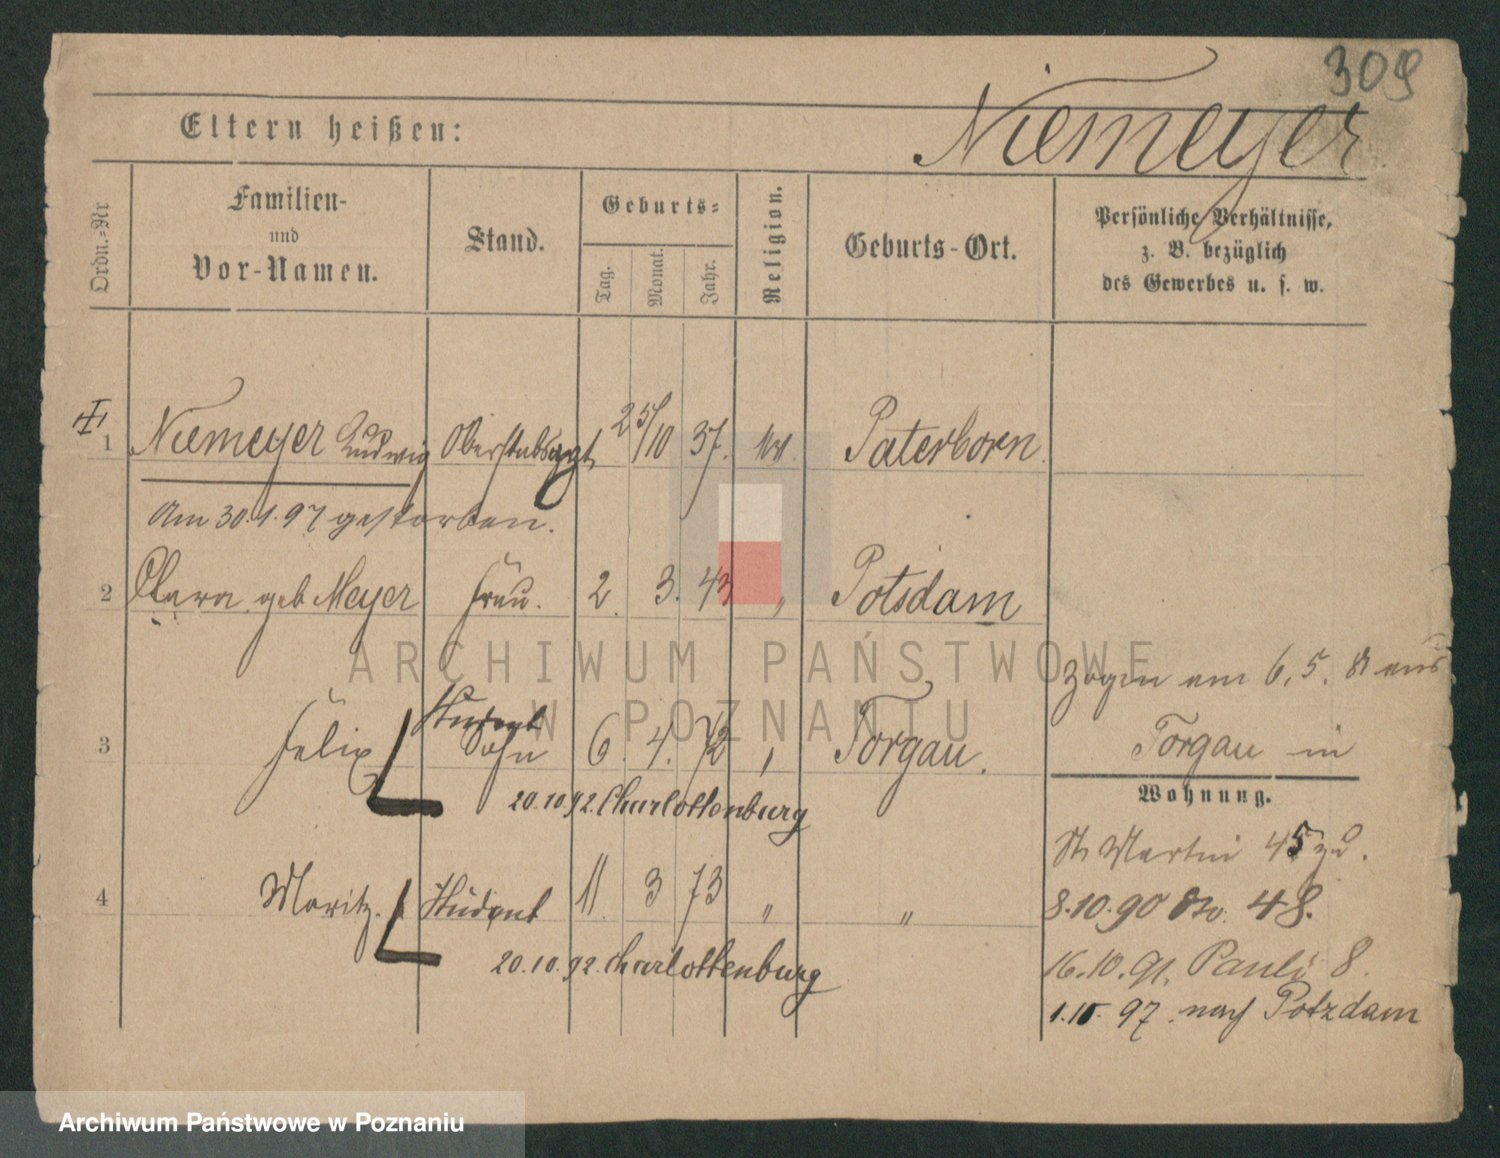 309
Niemeyer
Eltern heißen:
Ordn.-Nr
Familien-
und
Vor-Namen.
Stand.
Geburts-
Tag.
Monat.
Jahr.
Religion.
Geburts-Ort.
Persönliche Verhältnisse,
z. B. bezüglich
des Gewerbes u. s. w.
1 Niemeyer Ludwig Oberstabsarzt 25/10 37. Paterborn.
Am 30.1.97 gestorben.
2 Clara geb Meyer Frau. 2. 3. 43 " Potsdam
Zogen am 6. 5. aus
Student
3 Felix Sohn 6. 4. 72 " Torgau.
Torgau in
20.10.92. Charlottenburg
Wohnung.
St Martin 45
4 Moritz. Student 11. 3 73 " "
8.10.90 48.
20.10.92. Charlottenburg
16.10.91. Pauli 8.
1.10.97. nach Potzdam
ARCHIWUM PAŃSTWOWE
W POZNANIU
Archiwum Państwowe w Poznaniu